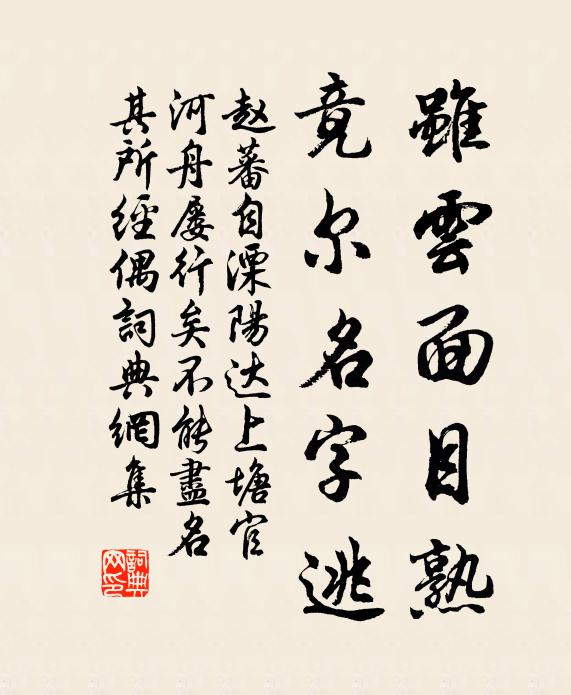 雖雲面目熟
竟尔名字逃
赵蕃自溧陽达上塘官
河舟屡行矣不能盡名
其所經偶詞典網集
詞典
网印